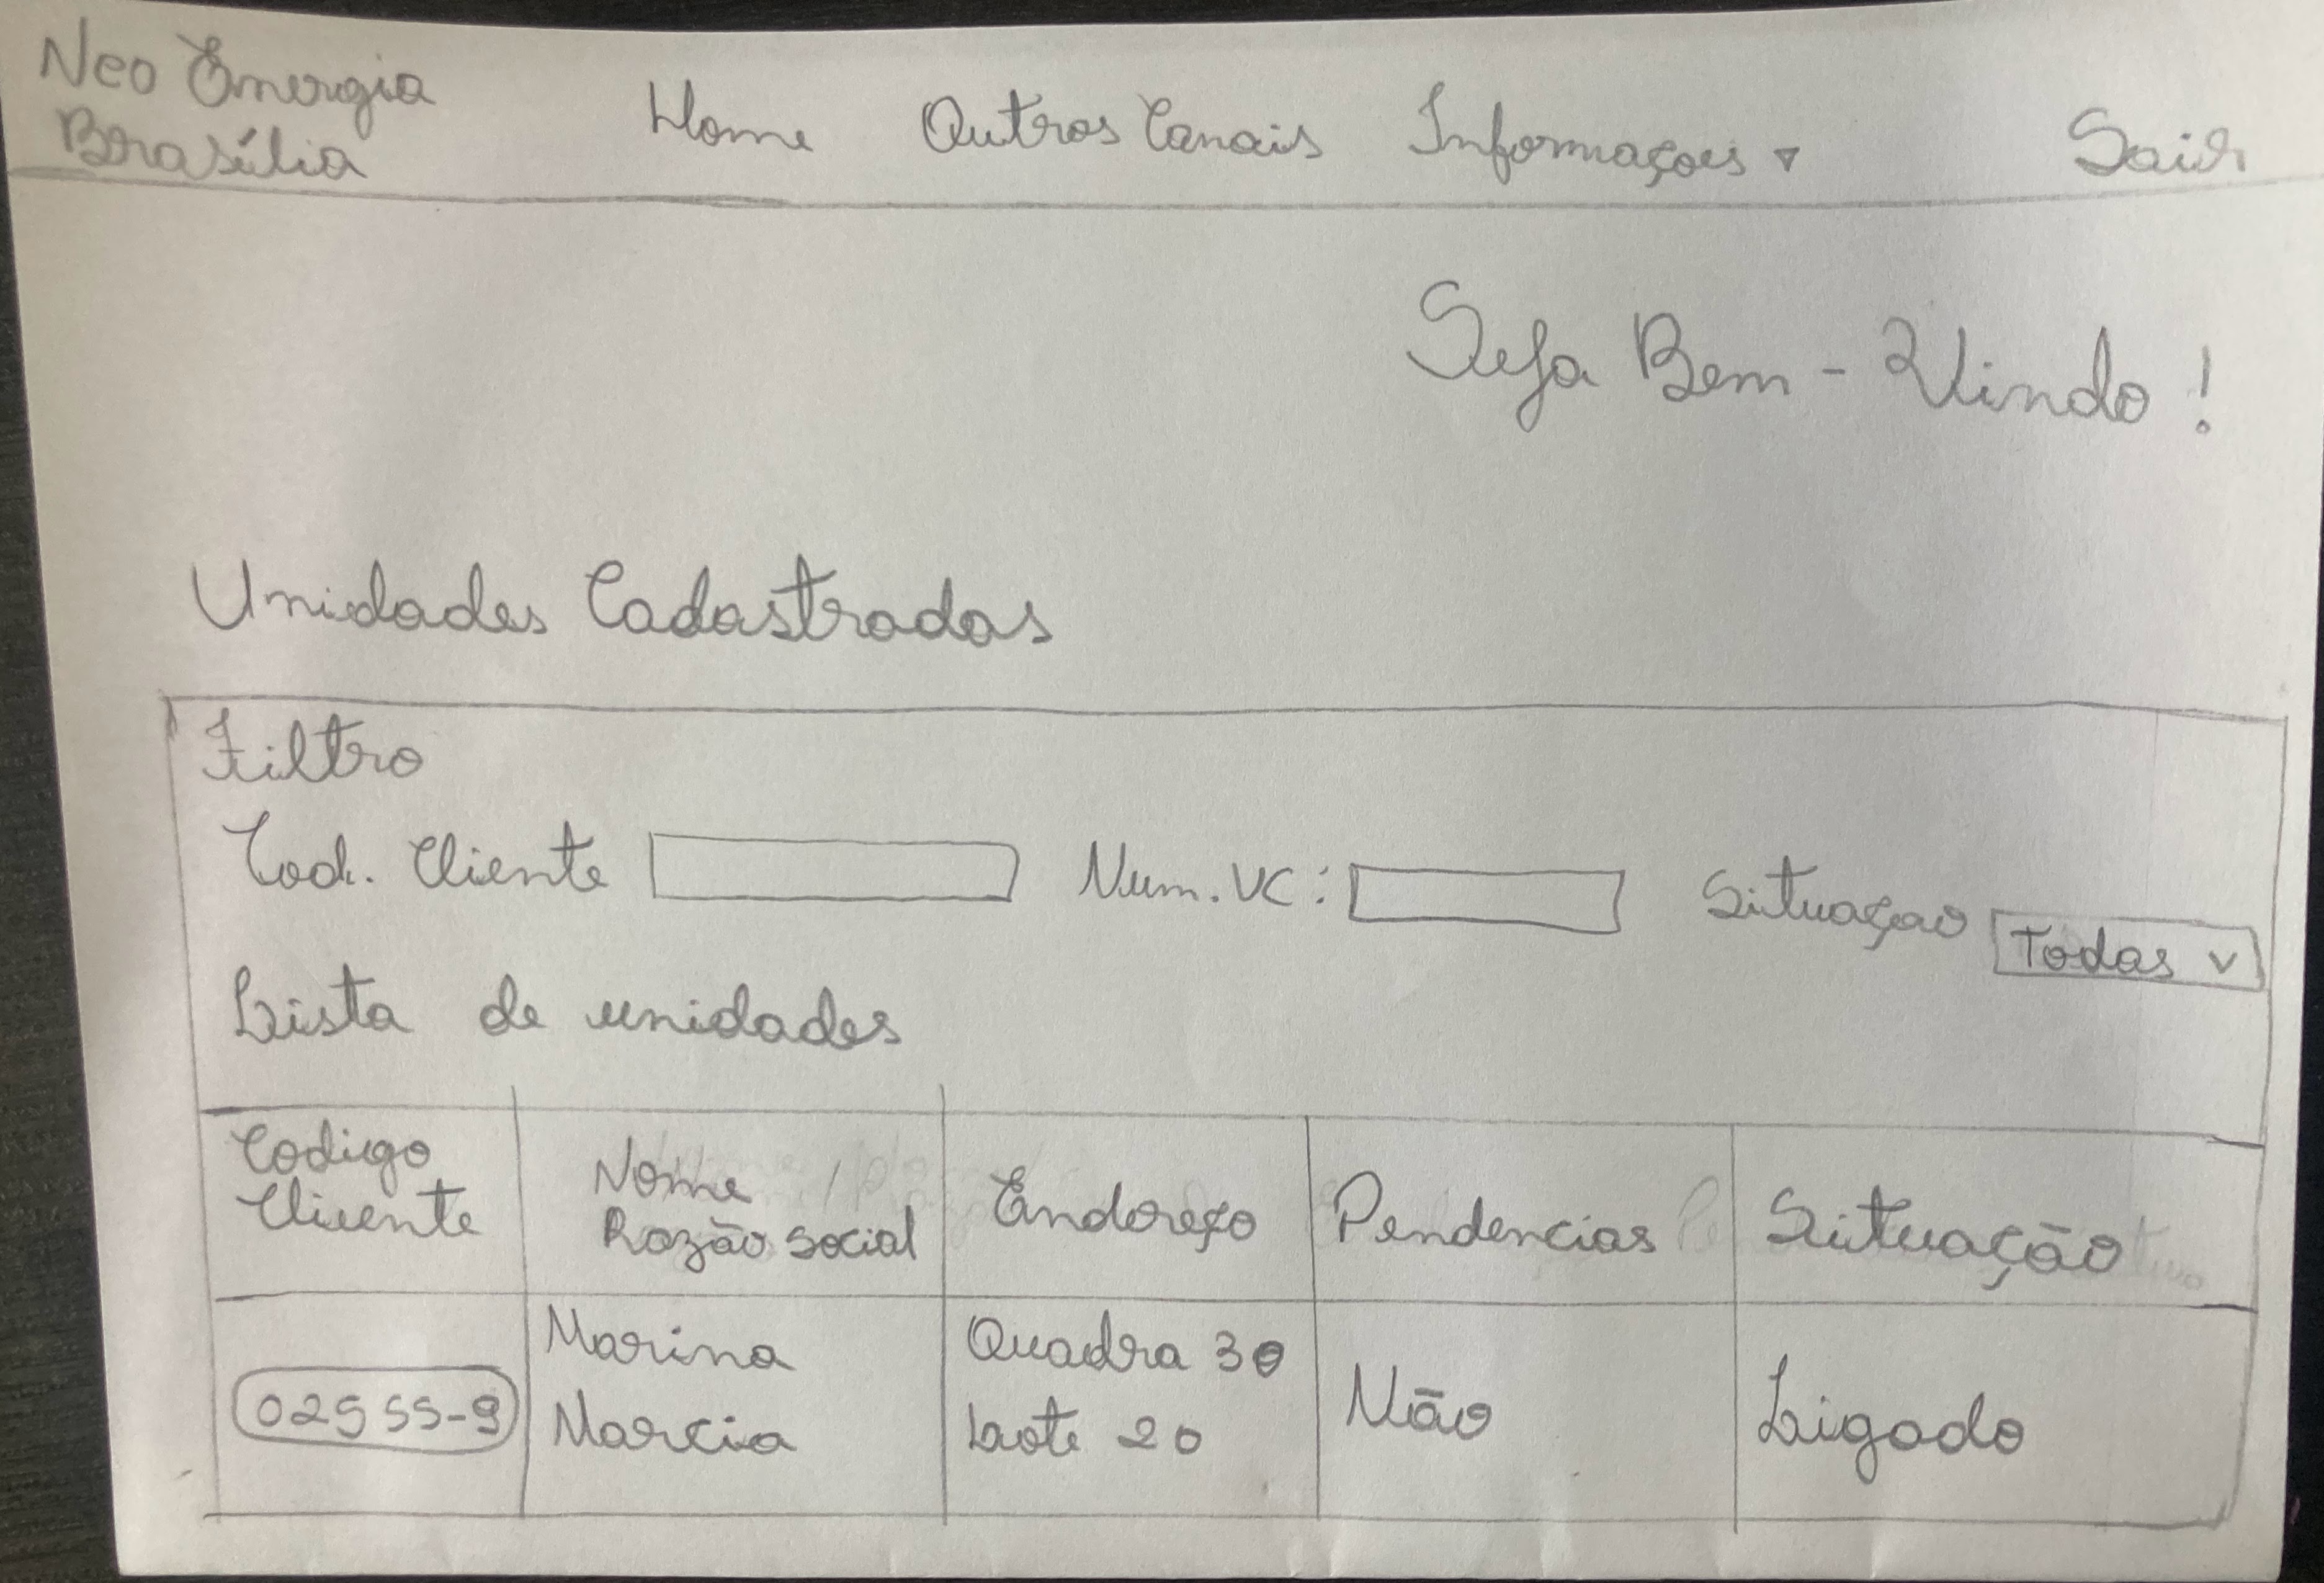 Neo Energia
Brasília
Home Outros Canais Informações ▾ Sair
Seja Bem-Vindo!
Unidades Cadastradas
Filtro
Cod. Cliente Num. UC: Situaçao Todas v
Lista de unidades
Codigo
Cliente
Nome
Razão social
Endereço
Pendencias
Situação
02555-9
Marina
Marcia
Quadra 30
Lote 20
Não
Ligado